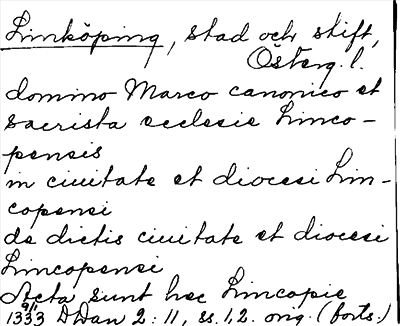 Linköping, stad och stift,
Österg. l.
domino Marco canonico et
sacrista ecclesie Linco-
pensis
in ciuitate et diocesi Lin-
copensi
de dictis ciuitate et diocesi
Lincopensi
Acta sunt hec Lincopie
1333 9/11 DDan 2:11, ss. 1,2. orig. (forts.)